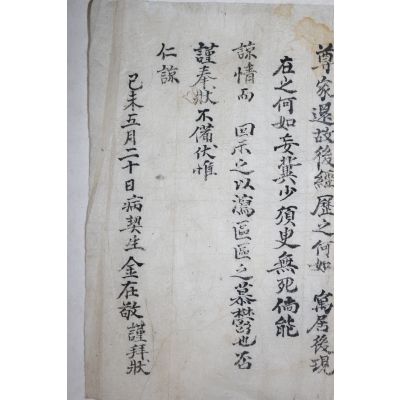 尊家還故後經歷之何如 寓居後現
在之何如妄冀少須臾無死倘能
諒情而 回示之以瀉區區之慕欝也否
謹奉狀不備伏惟
仁諒
己未五月二十日病契生金在敬謹拜狀